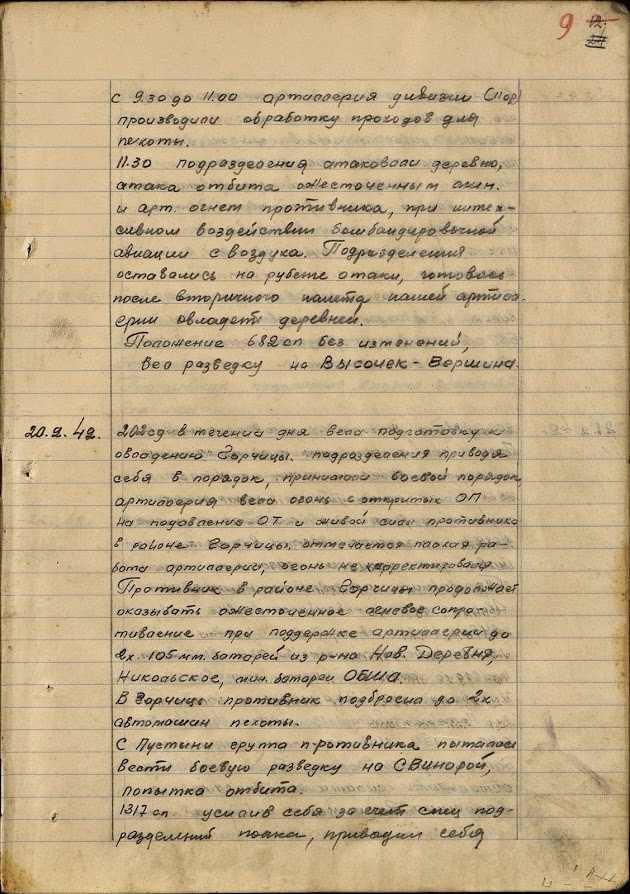 9
12
с 9.30 до 11.00 артиллерия дивизии (11 ор)
производили обработку проходов для
пехоты.
11.30 подразделения атаковали деревню,
атака отбита ожесточенным мин.
и арт. огнем противника, при интен-
сивном воздействии бомбандировочной
авиации с воздуха. Подразделения
оставались на рубеже атаки, готовясь
после вторичного налета нашей артил-
ерии овладеть деревней.
Положение 682 сп без изменений,
вел разведку на Высочек - Вершина.
20.2.42. 202 сд в течении дня вела подготовку к
овладению Горчицы. подразделения приводя
себя в порядок, принимали боевой порядок
артиллерия вела огонь с открытых ОП
на подавление ОТ и живой силы противника
в районе Горчицы, отмечается плохая ра-
бота артиллерии, огонь не корректировался
Противник в районе Горчицы продолжает
оказывать ожесточенное огневое сопро-
тивление при поддержке артиллерии до
2х 105 мм. батарей из р-на Нов. Деревня,
Никольское, мин. батареи Обша.
В Горчицы противник подбросил до 2х
автомашин пехоты.
С Пустыни группа противника пыталась
вести боевую разведку на Свинорой,
попытка отбита.
1317 сп усилив себя за счет спец под-
разделений полка, приводил себя